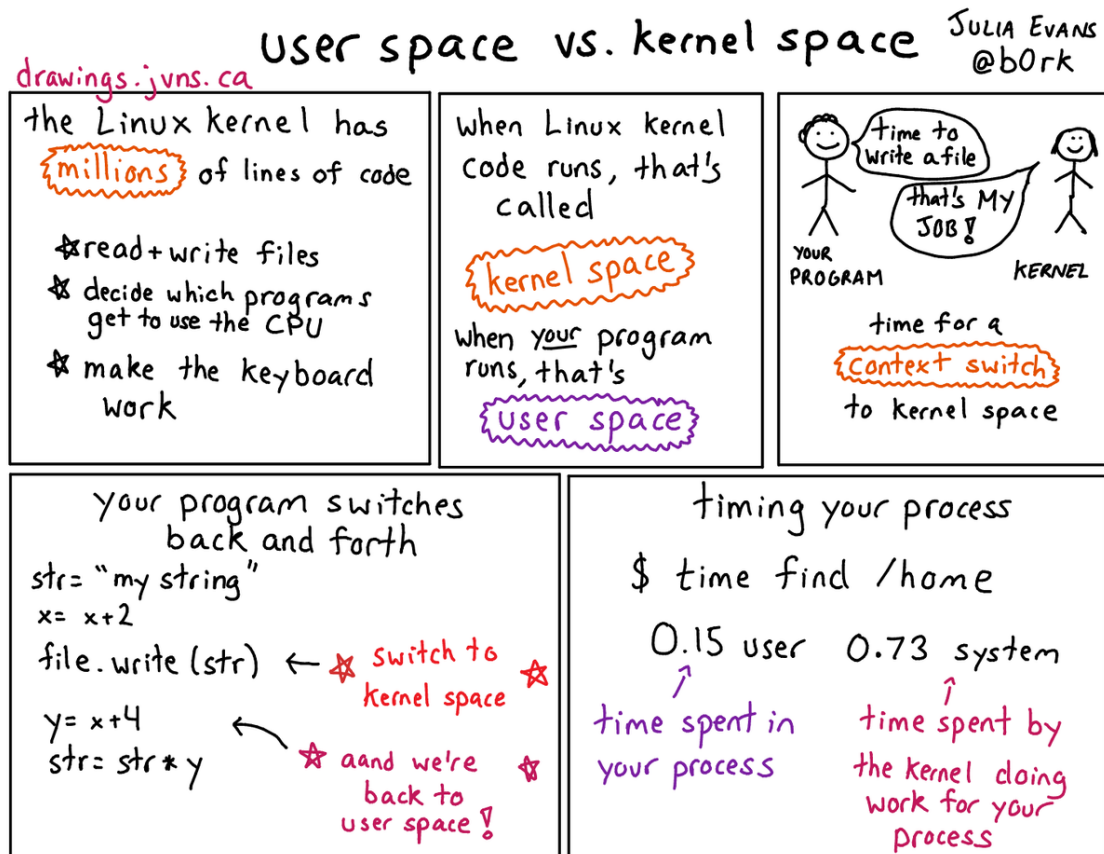 user space vs. kernel space
JULIA EVANS
@b0rk
drawings.jvns.ca
the Linux kernel has
millions of lines of code
☆ read + write files
☆ decide which programs
get to use the CPU
☆ make the keyboard
work
when Linux kernel
code runs, that's
called
kernel space
when your program
runs, that's
user space
time to
write a file
that's MY
JOB!
YOUR
PROGRAM
KERNEL
time for a
context switch
to kernel space
your program switches
back and forth
str= "my string"
x= x+2
file.write (str) ← ☆ switch to ☆
kernel space
y= x+4
str= str * y
☆ aand we're ☆
back to
user space!
timing your process
$ time find /home
0.15 user 0.73 system
time spent in
your process
time spent by
the kernel doing
work for your
process